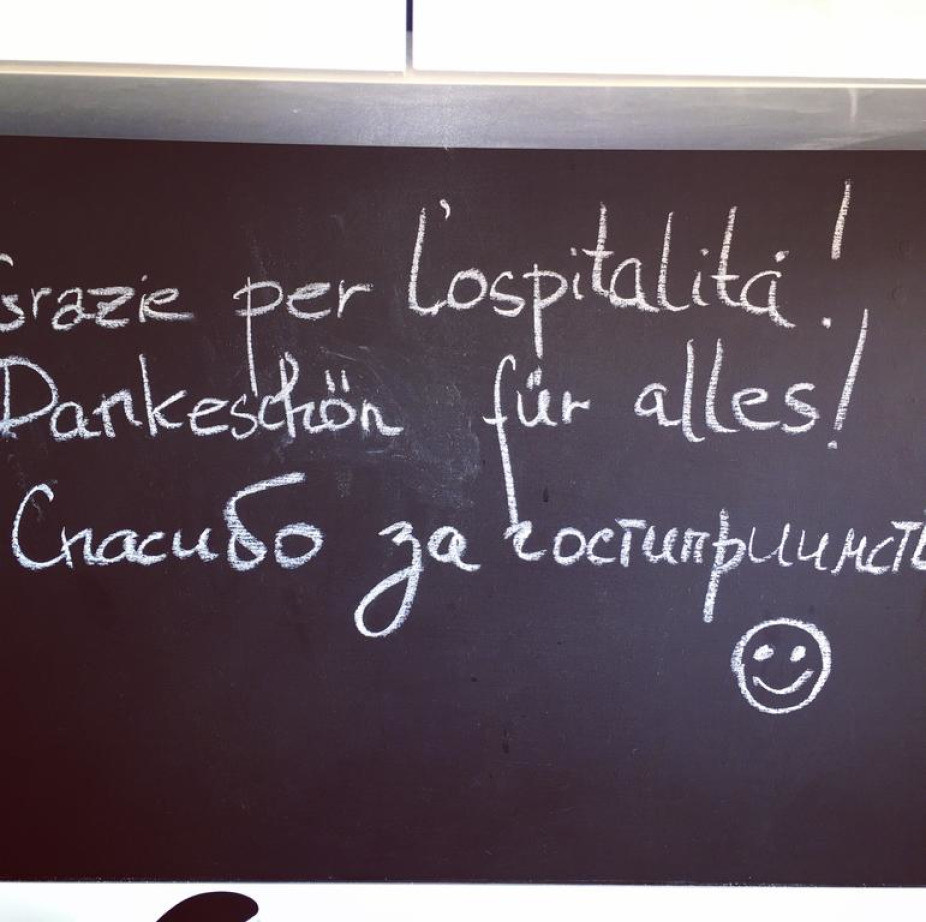 Grazie per l'ospitalitá!
Dankeschön für alles!
Спасибо за гостиприимств